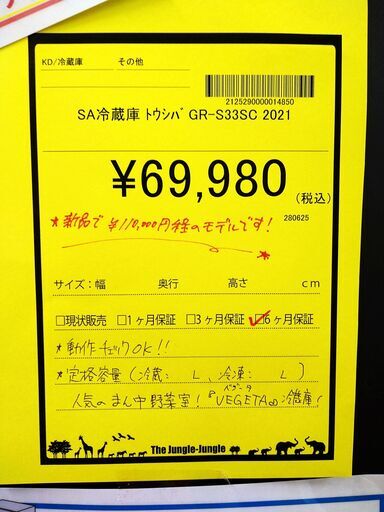 KD/冷蔵庫 その他
2125290000014850
SA冷蔵庫 ﾄｳｼﾊﾞ GR-S33SC 2021
¥69,980
(税込)
*新品で ¥110,000円程のモデルです!
280625
★
サイズ:幅 奥行 高さ cm
□現状販売 □1ヶ月保証 □3ヶ月保証 ☑6ヶ月保証
*動作チェックOK!!
*定格容量(冷蔵: L、冷凍: L)
ベジータ
人気のまん中野菜室!『VEGETA』冷蔵庫
The Jungle-Jungle